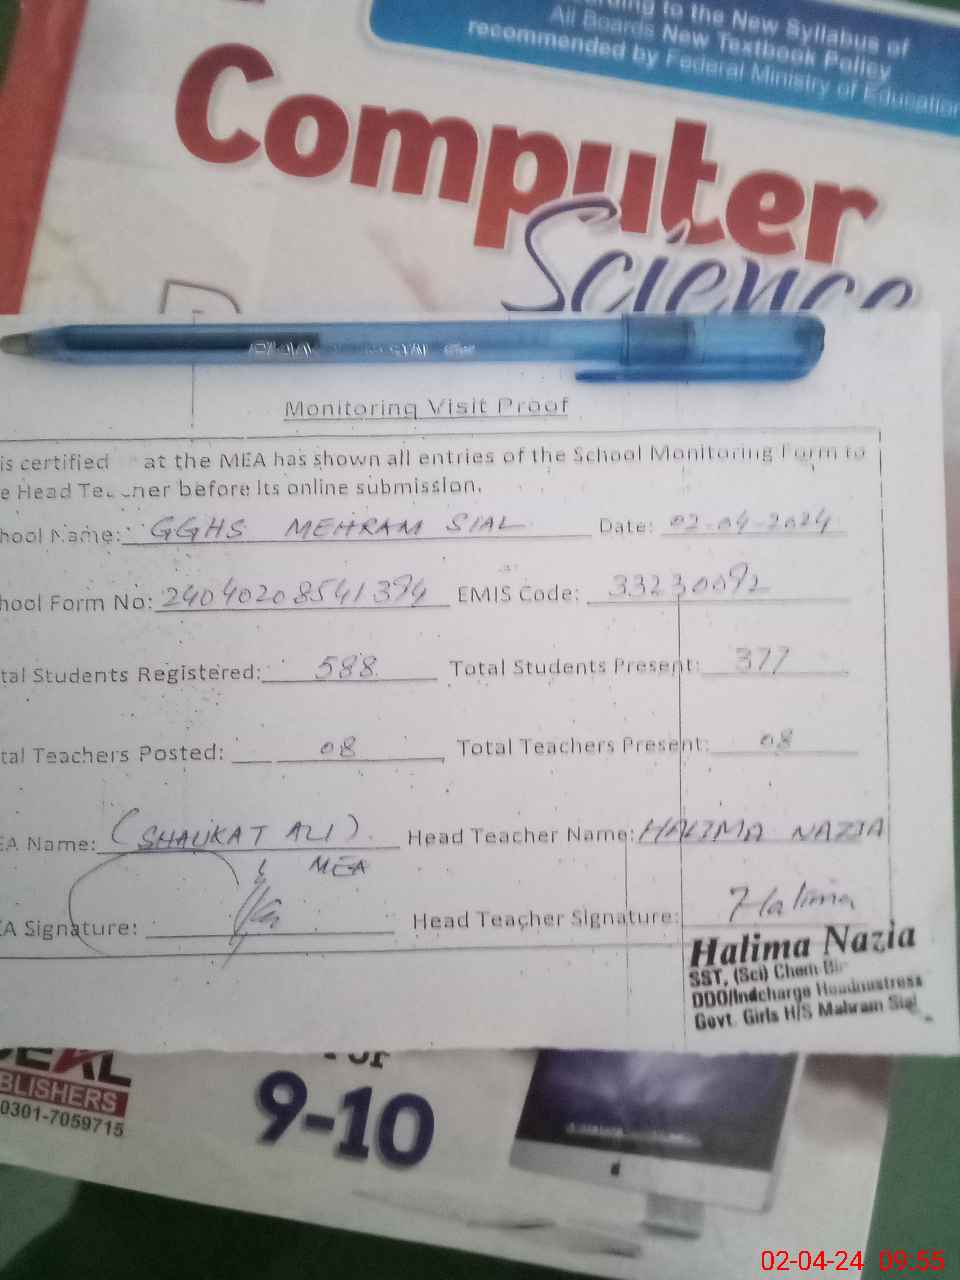 ding to the New Syllabus of
All Boards New Textbook Policy
recommended by Federal Ministry of Education
Computer
Science
Monitoring Visit Proof
is certified at the MEA has shown all entries of the School Monitoring Form to
e Head before its online submission.
hool Name: GGHS MEHRAM SIAL Date: 02-04-2024
hool Form No: 24040208541394 EMIS Code: 33230092
tal Students Registered: 588 Total Students Present: 377
tal Teachers Posted: 08 Total Teachers Present: 08
EA Name: (SHAUKAT ALI) Head Teacher Name: HALIMA NAZIA
MEA
EA Signature: Head Teacher Signature: Halima
Halima Nazia
SST, (Sci) Chem
DDO/Indcharge Headmistress
Govt. Girls H/S Mahram Sial
BLISHERS
0301-7059715
9-10
02-04-24 09:55